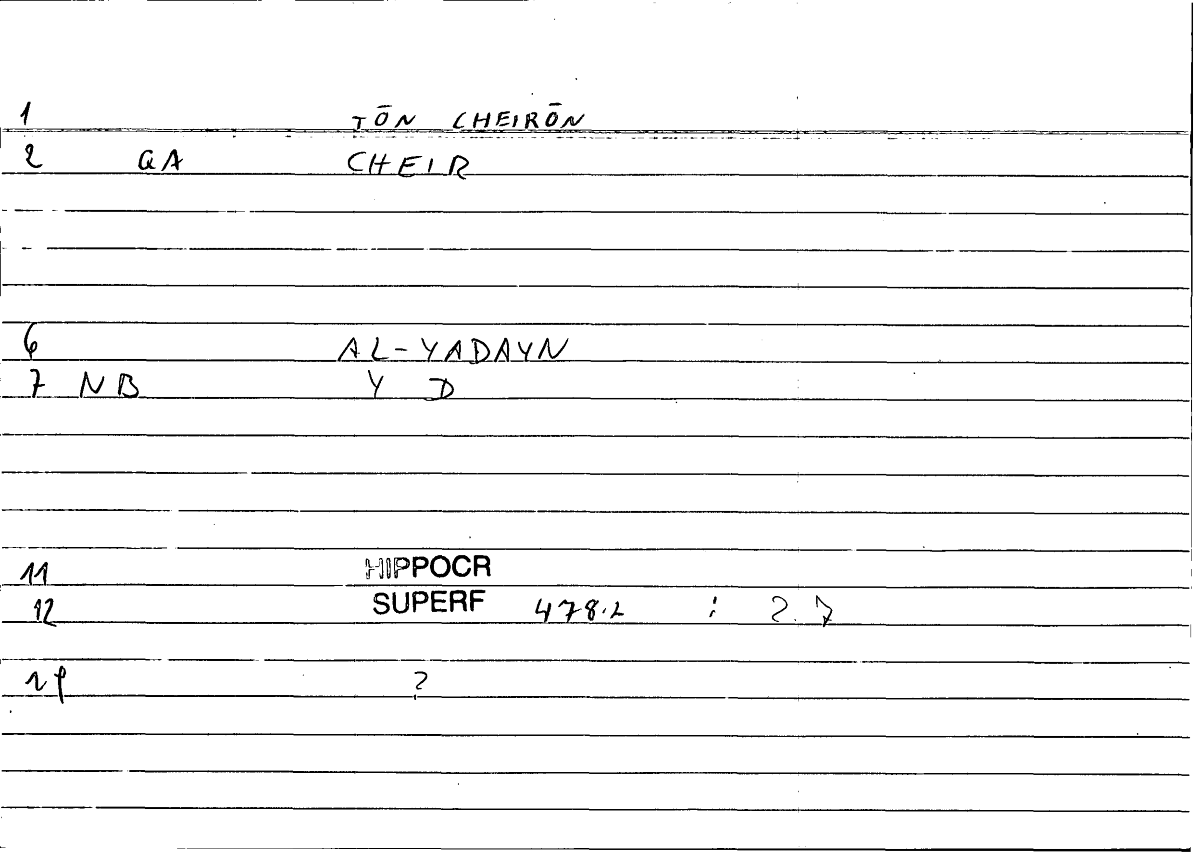 1 TŌN CHEIRŌN
2 GA CHEIR
6 AL-YADAYN
7 NB Y D
11 HIPPOCR
12 SUPERF 478.2 : 2.7
?